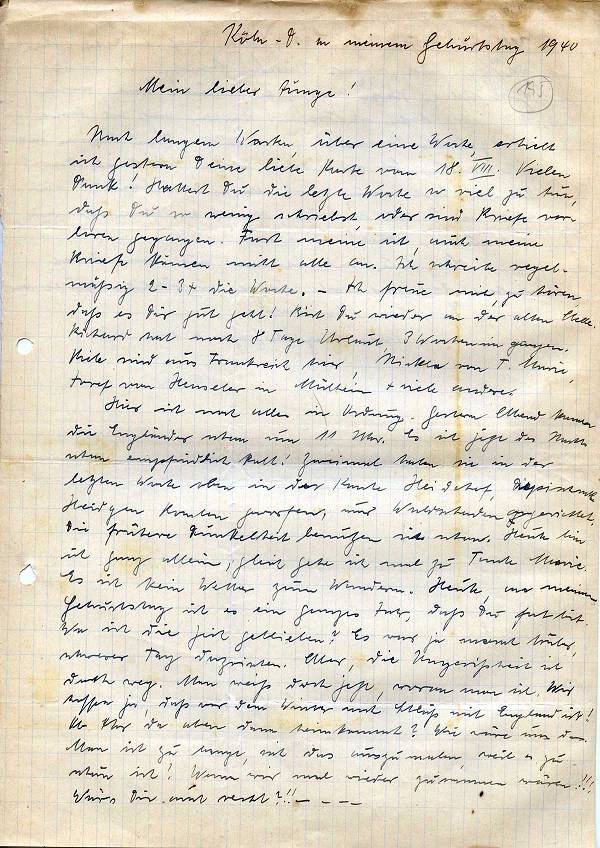 Köln-D. an meinem Geburtstag 1940
195
Mein lieber Junge!
Nach langem Warten, über eine Woche, erhielt
ich gestern Deine liebe Karte vom 18. VIII. Vielen
Dank! Hattest Du die letzte Woche so viel zu tun,
daß Du so wenig schriebst, oder sind Briefe ver-
loren gegangen. Fast meine ich, auch meine
Briefe kämen nicht alle an. Ich schreibe regel-
mäßig 2-3x die Woche. – Ich freue mich, zu hören,
daß es Dir gut geht! Bist Du wieder an der alten Stelle.
Richard hat noch 8 Tage Urlaub, 3 Wochen im ganzen.
Viele sind aus Frankreich hier, von T. Marie,
Josef von in + viele andere.
Hier ist noch alles in Ordnung. Gestern Abend kamen
die Engländer schon um 11 Uhr. Es ist jetzt des Nachts
schon empfindlich kalt! Zweimal haben sie in der
letzten Woche oben in der Kante
geworfen, nur Waldschaden angerichtet,
Die frühere Dunkelheit benutzen sie schon. Heute bin
ich ganz allein, gleich gehe ich mal zu Tante Marie.
Es ist kein Wetter zum Wandern. Heute, an meinem
Geburtstag ist es ein ganzes Jahr, daß Du fort bist.
Wo ist die Zeit geblieben? Es war ja manch trüber,
schwerer Tag dazwischen. Aber, die Ungewißheit ist
doch weg. Man weiß doch jetzt, woran man ist. Wir
hoffen ja, daß vor dem Winter noch Schluß mit England ist!
Ob Ihr da aber dann heimkommt? Wie wäre uns das
Man ist zu bange, sich das auszumalen, weil es zu
schön ist! Wenn wir mal wieder zusammen wären!!!
Wärs Dir auch recht?!! – – – –